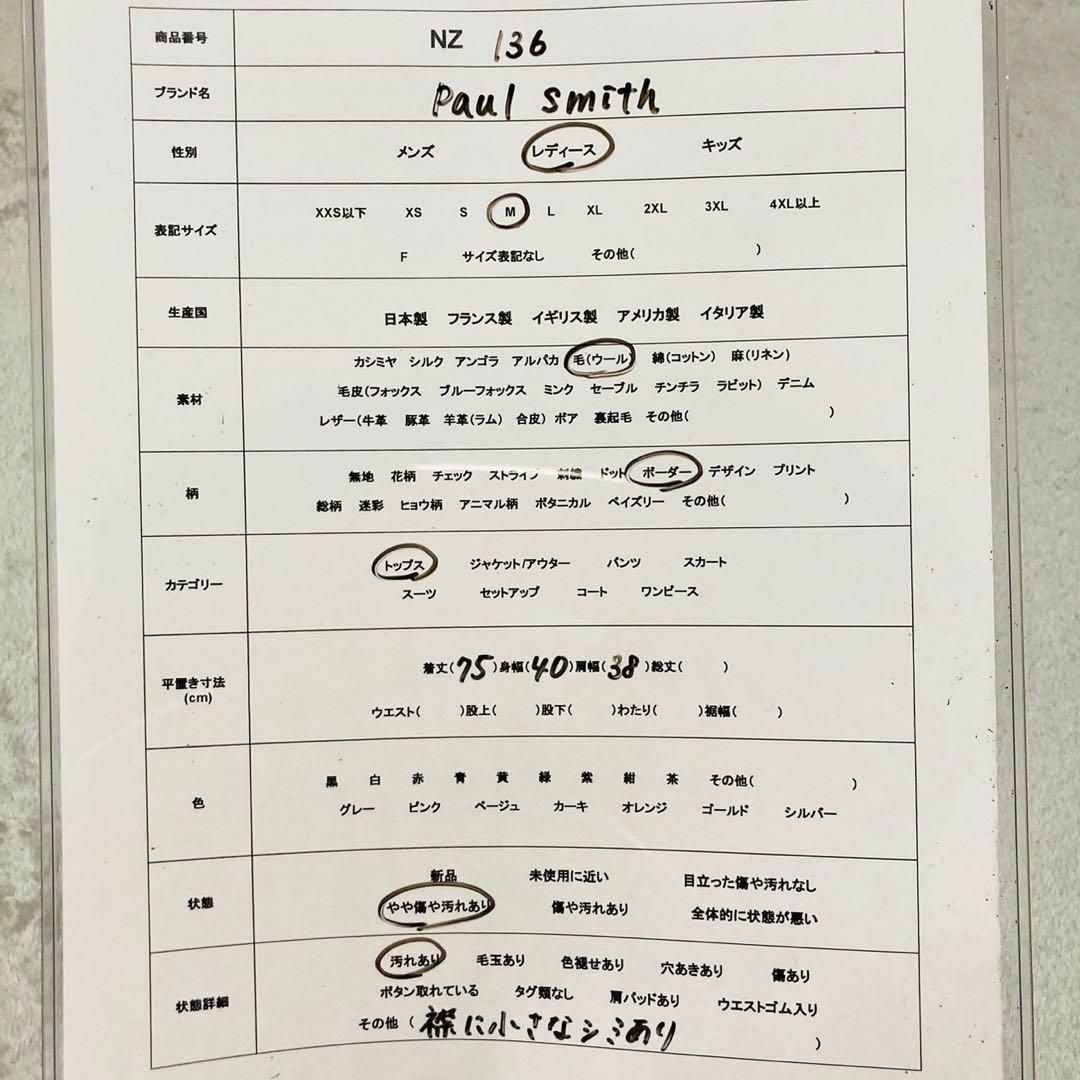 商品番号 NZ 136
ブランド名 Paul Smith
性別 メンズ レディース キッズ
表記サイズ
XXS以下 XS S M L XL 2XL 3XL 4XL以上
F サイズ表記なし その他( )
生産国 日本製 フランス製 イギリス製 アメリカ製 イタリア製
素材
カシミヤ シルク アンゴラ アルパカ 毛(ウール) 綿(コットン) 麻(リネン)
毛皮(フォックス ブルーフォックス ミンク セーブル チンチラ ラビット) デニム
レザー(牛革 豚革 羊革(ラム) 合皮) ボア 裏起毛 その他( )
柄
無地 花柄 チェック ストライプ 刺繍 ドット ボーダー デザイン プリント
総柄 迷彩 ヒョウ柄 アニマル柄 ボタニカル ペイズリー その他( )
カテゴリー
トップス ジャケット/アウター パンツ スカート
スーツ セットアップ コート ワンピース
平置き寸法
(cm)
着丈(75)身幅(40)肩幅(38)総丈( )
ウエスト( )股上( )股下( )わたり( )裾幅( )
色
黒 白 赤 青 黄 緑 紫 紺 茶 その他( )
グレー ピンク ベージュ カーキ オレンジ ゴールド シルバー
状態
新品 未使用に近い 目立った傷や汚れなし
やや傷や汚れあり 傷や汚れあり 全体的に状態が悪い
状態詳細
汚れあり 毛玉あり 色褪せあり 穴あきあり 傷あり
ボタン取れている タグ類なし 肩パッドあり ウエストゴム入り
その他 ( 襟に小さなシミあり )